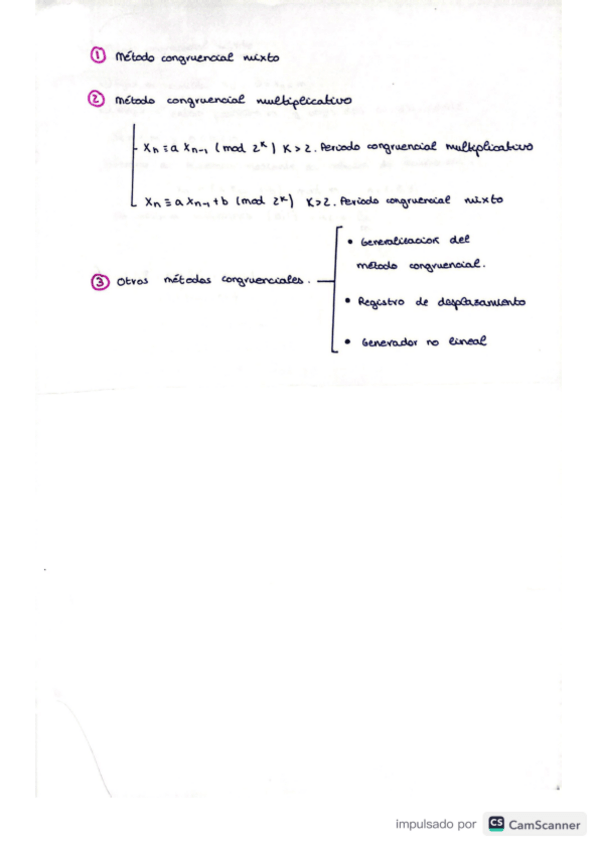 ① Método congruencial mixto
② método congruencial multiplicativo
Xn ≡ a Xn-1 (mod 2^k) K>2. Periodo congruencial multiplicativo
Xn ≡ a Xn-1 + b (mod 2^k) K>2. Periodo congruencial mixto
• Generalización del
método congruencial.
③ Otros métodos congruenciales.
• Registro de desplasamiento
• Generador no lineal
impulsado por CS CamScanner